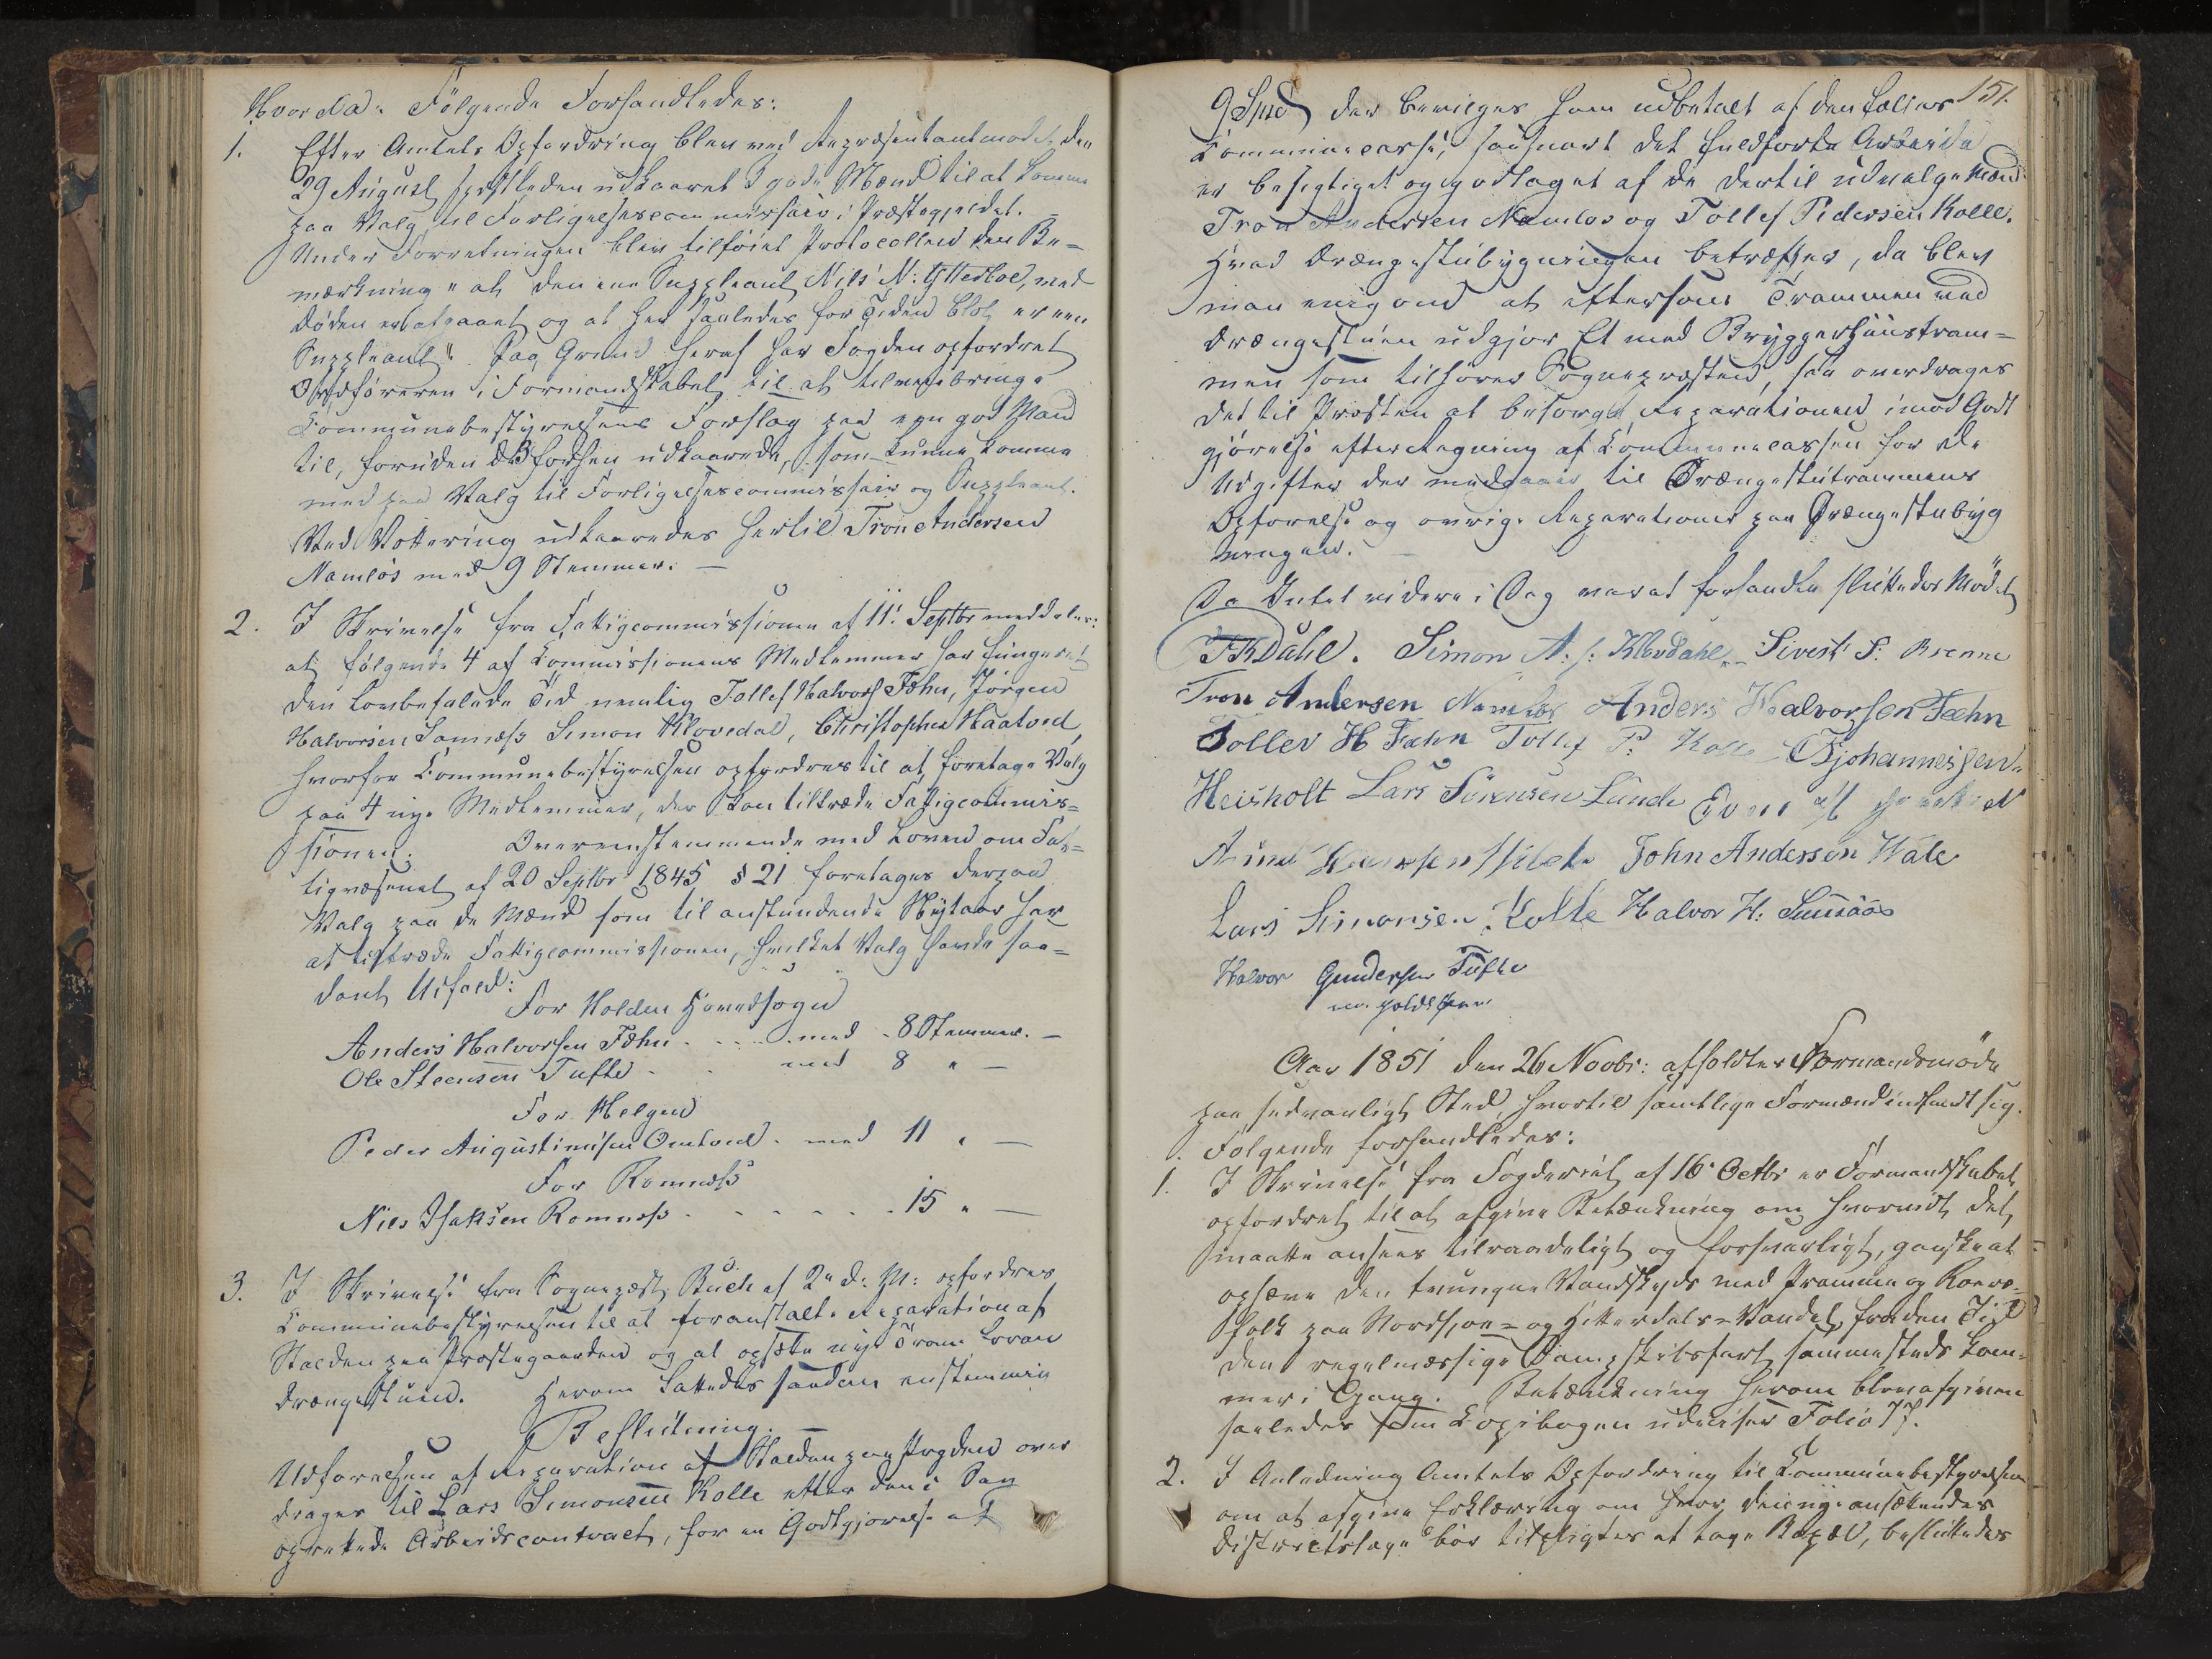 Hvorda Følgende Forhandledes:
1. Efter Amtets Opfordring blev ved Repræsentantmødet den
29 August sidstleden udkaaret 3 gode Mænd til at komme
paa Valg til Forligelsescommissair i Præstegjeldet. –
Under Forretningen blev tilføiet Protocollen den Be=
mærkning "at den ene Suppleant Nils N: Ytterbøe, ved
Døden er afgaaet og at her saaledes for Tiden blot er een
Suppleant". Paa Grund heraf har Fogden opfordret
Ordføreren i Formandskabet til at tilveiebringe
Communebestyrelsens Forslag paa een god Mand
til, foruden de 3 forhen udkaarede, som kunne komme
med paa Valg til Forligelsescommissair og Suppleant.
Ved Vottering udkaaredes hertil Tron Andersen
Namløs med 9 Stemmer. –
2. I Skrivelse fra Fattigcommissionen af 11' Septbr meddeles:
at følgende 4 af Commissionens Medlemmer har fungeret
den lovbefalede Tid nemlig Tollef Halvors Fæhn, Jørgen
Halvorsen Sannæss Simon Klovedal, Christopher Haatved,
hvorfor Communebestyrelsen opfordres til at foretage Valg
paa 4 nye Medlemmer, der kan tiltræde Fattigcommis=
sionen. Overeenstemmende med Loven om Fat=
tigvæsenet af 20 Septbr 1845 § 21 foretages derpaa
Valg paa de Mænd som til anstundende Nytaar har
at tiltræde Fattigcommissionen, hvilket Valg havde saa=
dant Udfald:
For Holden Hovedsogn
Anders Halvorsen Fæhn . . . . med . 8 Stemmer. –
Ole Steensen Tufte . . med 8 " –
For Helgen
Peder Augustinusen Omtved . med 11 " –
For Romnæss
Nils Isaksen Romnæss . . . . . . . 15 " –
3. I Skrivelse fra Sognepræst Buch af 2' d: M: opfordres
Communebestyrelsen til at foranstalte Reparation af
Stalden paa Præstegaarden og at opsætte ny Tram foran
Drængestuen. Herom fattedes saadan enstemmig
Beslutning. –
Udførelsen af Reparation af Stalden paa Prgden over
drages til Lars Simonsen Kolle efter den i Dag
oprettede Arbeidscontract, for en Godtgjørelse af
151.
9 Spd der bevilges ham udbetalt af den fælles
Communecasse, saasnart det fuldførte Arbeide
er besigtiget og godtaget af de dertil udvalgte Mænd
Tron Andersen Namløs og Tollef Pedersen Kolle.
Hvad Drængestubygningen betræffer, da blev
man enig om at eftersom Trammen ved
Drængestuen udgjør Et med Bryggerhuustram=
men som tilhører Sognepræsten, saa overdrages
det til Præsten at besørge Reparationen imod Godt
gjørelse efter Regning af Communecassen for de
Udgifter der medgaaer til Drængestutrammens
Opførelse og øvrige Reparationer paa Drængestubyg
ningen. –
Da Intet videre i Dag var at forhandle sluttedes Mødet
Dahl. Simon A: s: Klovdahl. Sivert S: Brenne
Tron Andersen Namløs Anders Halvorsen Fæhn
Tollev H Fæhn Tollef P: Kolle Johannessen.
Heisholt Lars Sørensen Lunde
John Andersen Hale
Lars Simonsen Kolle Halvor H:
Halvor Gundersen Tufte
m. paaholden Pen
Aar 1851 den 26 Novbr: afholdtes Formandsmøde
paa sedvanligt Sted, hvortil samtlige Formænd indfandt sig.
Følgende forhandledes:
1. I Skrivelse fra Fogderiet af 16' Octbr er Formandskabet
opfordret til at afgive Betænkning om hvorvidt det,
maatte ansees tilraadeligt og forsvarligt, ganske at
ophæve den tvungne Vandskyds med Pramme og Roers=
folk paa Nordsjøe= og Hitterdals=Vandet, fra den Tid
den regelmæssige Dampskibsfart sammesteds kom=
mer i Gang. Betænkning herom blev afgiven
saaledes som Copibogen udviser Folio 77.
2. I Anledning Amtets Opfordring til Communebestyrelsen
om at afgive Erklæring om hvor den nye ansættendes
Districtslæge bør tilpligtes at tage Bopæl, besluttedes